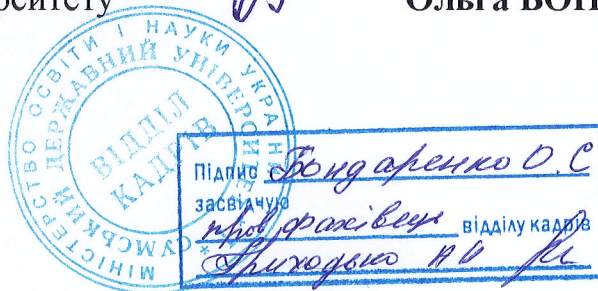 ситету Ольга БОН
МІНІСТЕРСТВО ОСВІТИ І НАУКИ УКРАЇН
СУМСЬКИЙ ДЕРЖАВНИЙ УНІВЕРСИТЕ
ВІДДІЛ
КАДРІВ
Підпис Бондаренко О.С
засвідчую
пров фахівець відділу кадрів
Приходько